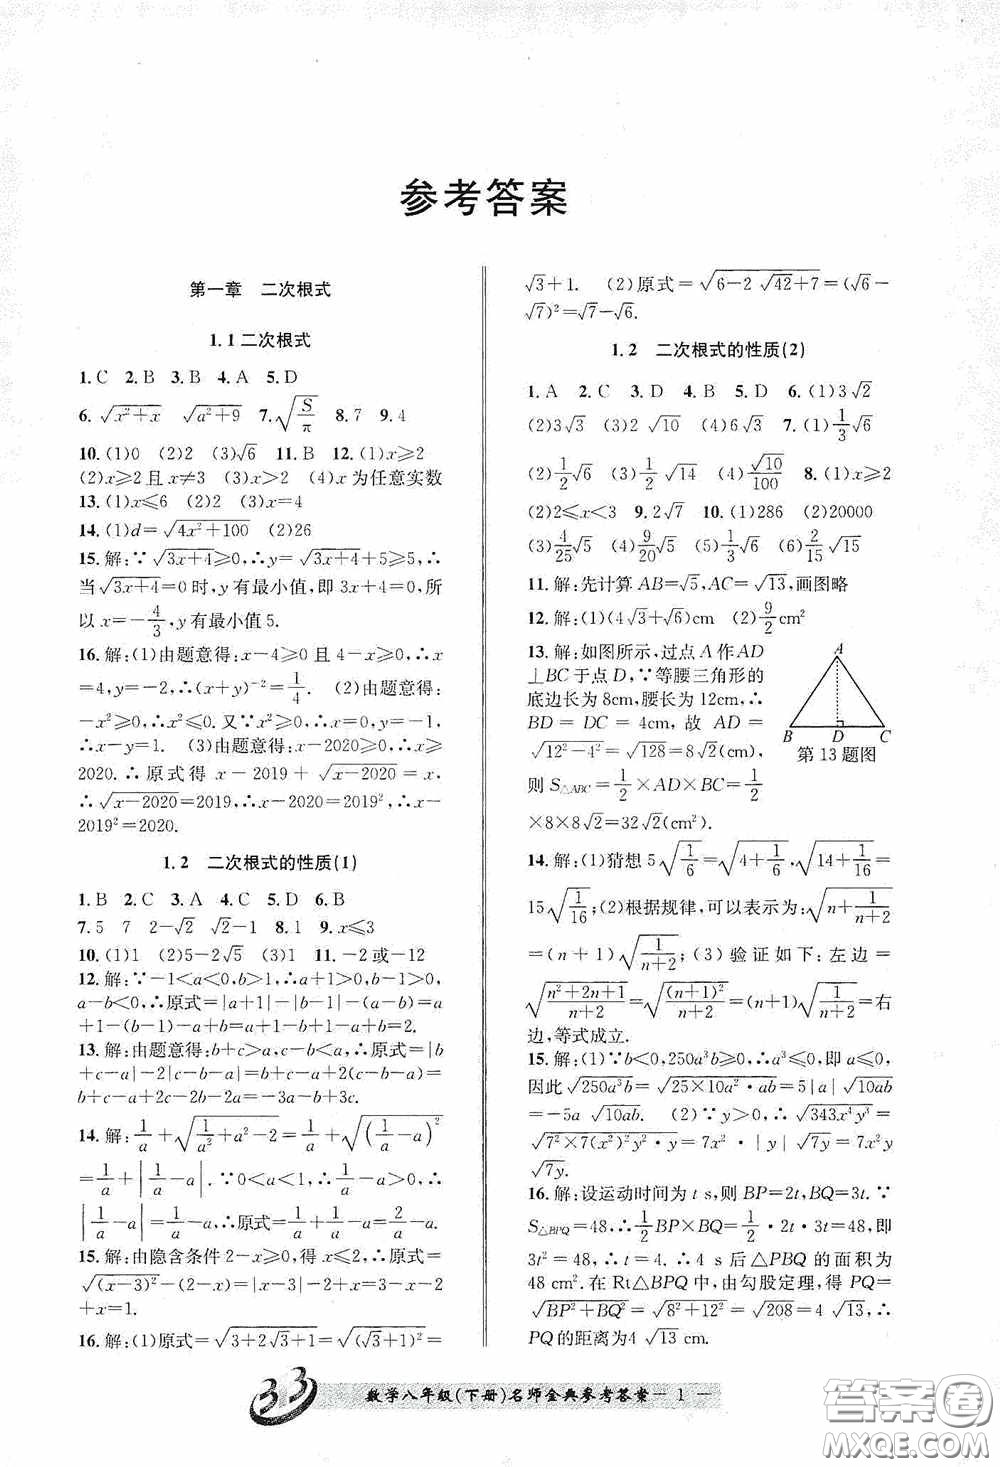 参考答案
第一章 二次根式
1.1 二次根式
1.C 2.B 3.B 4.A 5.D
6.√(x²+x) √(a²+9) 7.√(S/π) 8.7 9.4
10.(1)0 (2)2 (3)√6 11.B 12.(1)x≥2
(2)x≥2且x≠3 (3)x>2 (4)x为任意实数
13.(1)x≤6 (2)x>2 (3)x=4
14.(1)d=√(4x²+100) (2)26
15.解:∵√(3x+4)≥0,∴y=√(3x+4)+5≥5,∴
当√(3x+4)=0时,y有最小值,即3x+4=0,所
以x=-4/3,y有最小值5.
16.解:(1)由题意得:x-4≥0且4-x≥0,∴x
=4,y=-2,∴(x+y)⁻²=1/4. (2)由题意得:
-x²≥0,∴x²≤0.又∵x²≥0,∴x=0,y=-1,
∴x-y=1. (3)由题意得:x-2020≥0,∴x≥
2020.∴原式得x-2019+√(x-2020)=x,
∴√(x-2020)=2019,∴x-2020=2019²,∴x-
2019²=2020.
1.2 二次根式的性质(1)
1.B 2.C 3.A 4.C 5.D 6.B
7.5 7 2-√2 √2-1 8.1 9.x≤3
10.(1)1 (2)5-2√5 (3)1 11.-2或-12
12.解:∵-1<a<0,b>1,∴a+1>0,b-1>0,
a-b<0,∴原式=|a+1|-|b-1|-|a-b|=a
+1-(b-1)-a+b=a+1-b+1-a+b=2.
13.解:由题意得:b+c>a,c-b<a,∴原式=|b
+c-a|-2|c-b-a|=b+c-a+2(c-b-a)=
b+c-a+2c-2b-2a=-3a-b+3c.
14.解:1/a+√(1/a²+a²-2)=1/a+√((1/a-a)²)
=1/a+|1/a-a|.∵0<a<1,∴1/a>a,∴
|1/a-a|=1/a-a,∴原式=1/a+1/a-a=2/a-a.
15.解:由隐含条件2-x≥0,得x≤2,∴原式=
√((x-3)²)-(2-x)=|x-3|-2+x=3-x-2
+x=1.
16.解:(1)原式=√(3+2√3+1)=√((√3+1)²)=
√3+1. (2)原式=√(6-2√42+7)=(√6-
√7)²=√7-√6.
1.2 二次根式的性质(2)
1.A 2.C 3.D 4.B 5.D 6.(1)3√2
(2)3√3 (3)2√10 (4)6√3 7.(1)1/3√6
(2)1/2√6 (3)1/2√14 (4)√10/100 8.(1)x≥2
(2)2≤x<3 9.2√7 10.(1)286 (2)20000
(3)4/25√5 (4)9/20√5 (5)1/3√6 (6)2/15√15
11.解:先计算AB=√5,AC=√13,画图略
12.解:(1)(4√3+√6)cm (2)9/2cm²
13.解:如图所示,过点A作AD
⊥BC于点D,∵等腰三角形的
底边长为8cm,腰长为12cm,∴
BD=DC=4cm,故AD=
√(12²-4²)=√128=8√2(cm),
则S△ABC=1/2×AD×BC=1/2
×8×8√2=32√2(cm²).
A
B D C
第13题图
14.解:(1)猜想5√(1/6)=√(4+1/6),√(14+1/16)=
15√(1/16);(2)根据规律,可以表示为:√(n+1/(n+2))
=(n+1)√(1/(n+2));(3)验证如下:左边=
√((n²+2n+1)/(n+2))=√((n+1)²/(n+2))=(n+1)√(1/(n+2))=右
边,等式成立.
15.解:(1)∵b<0,250a³b≥0,∴a³≤0,即a≤0,
因此√(250a³b)=√(25×10a²·ab)=5|a|√(10ab)
=-5a√(10ab). (2)∵y>0,∴√(343x⁴y³)=
√(7²×7(x²)²y²·y)=7x²·|y|√(7y)=7x²y
√(7y).
16.解:设运动时间为t s,则BP=2t,BQ=3t.∵
S△BPQ=48,∴1/2BP×BQ=1/2·2t·3t=48,即
3t²=48,∴t=4.∴4 s后△PBQ的面积为
48 cm².在Rt△BPQ中,由勾股定理,得PQ=
√(BP²+BQ²)=√(8²+12²)=√208=4√13,∴
PQ的距离为4√13 cm.
33 数学八年级(下册)名师金典参考答案—1—
答案卷
MXQE.COM